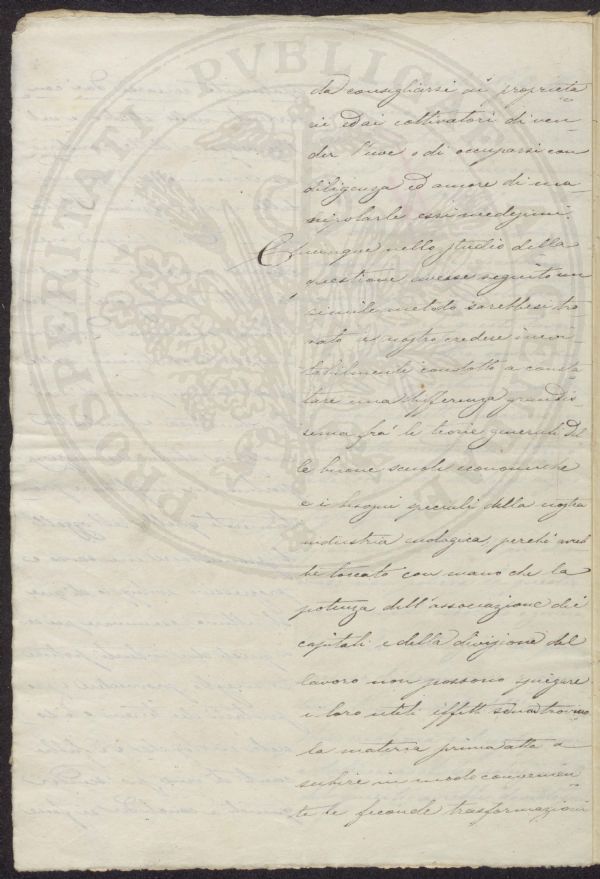 da consigliarsi ai proprieta
rii ed ai coltivatori di ven
der l'uve o di occuparsi con
diligenza ed amore di ma
nipolarle essi medesimi.
Chiunque nello studio della
questione avesse seguito un
simile metodo sarebbesi tro
vato a nostro credere inevi
tabilmente condotto a consta
tare una differenza grandis
sima fra le teorie generali del
le buone scuole economiche
e i bisogni speciali della nostra
industria enologica, perchè avreb
be toccato con mano che la
potenza dell'associazione dei
capitali e della divizione del
lavoro non possono spiegare
i loro utili effetti se non trovano
la materia prima atta a
subire in modo convenien
te le feconde trasformazioni
PROSPERITATI PVBLICAE